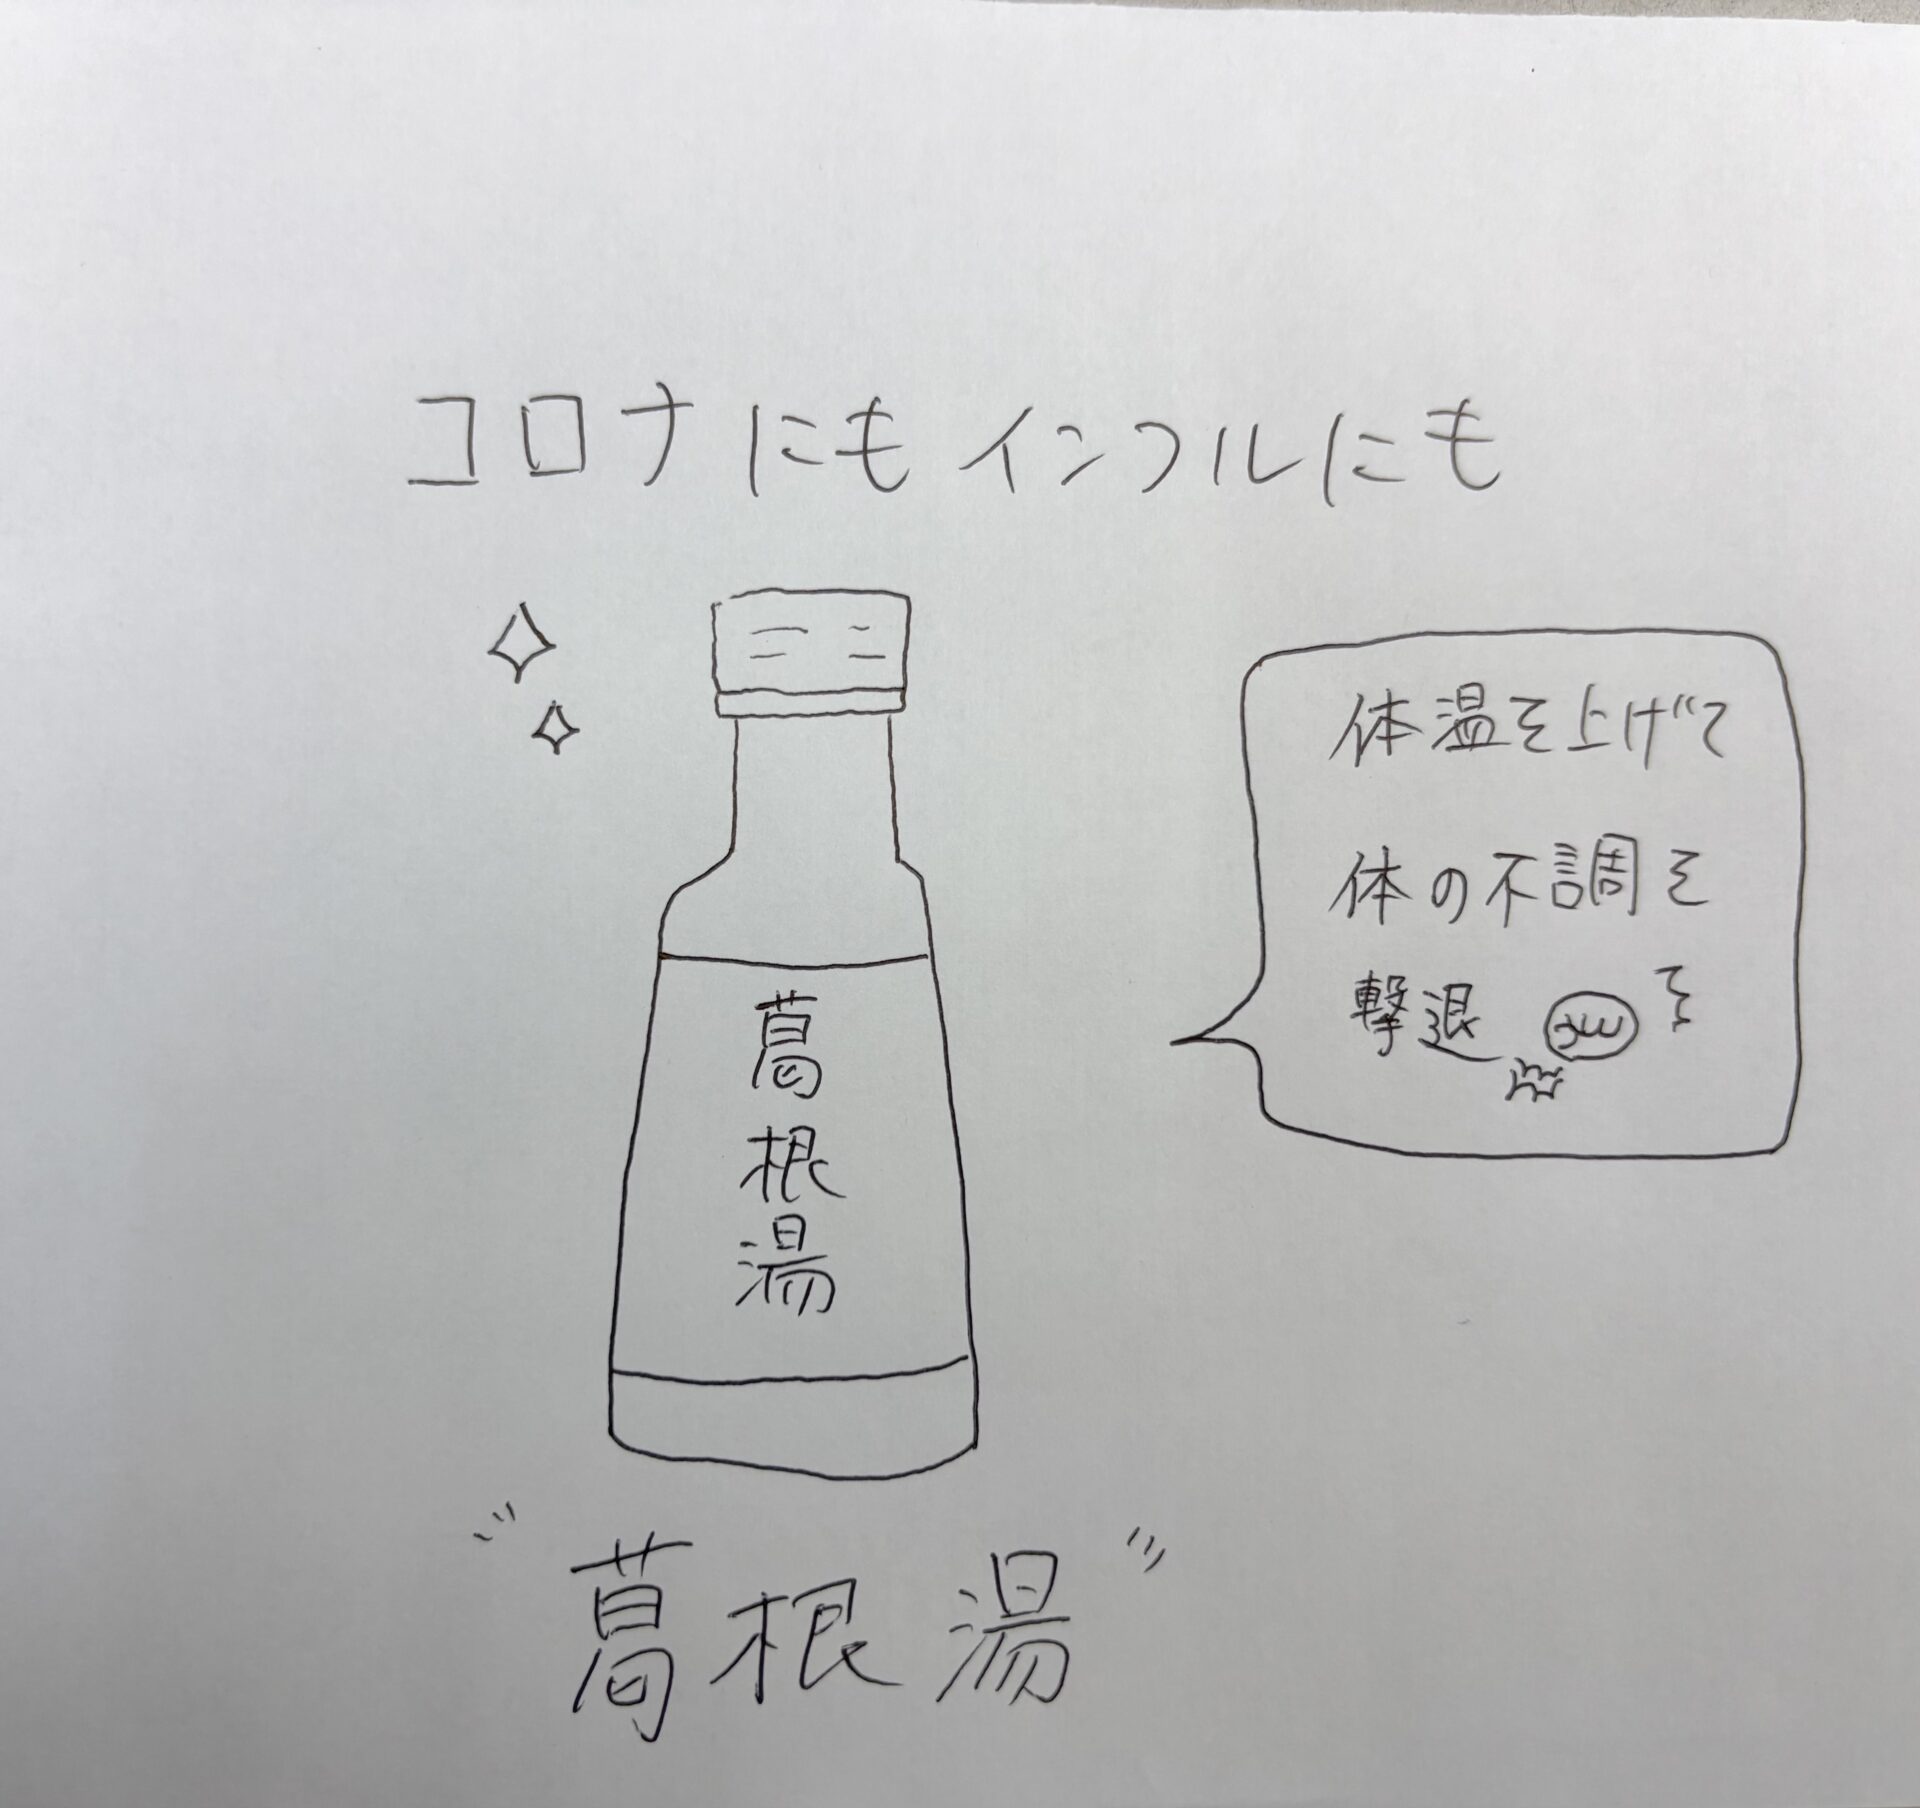 コロナにもインフルにも
体温を上げて
体の不調を
撃退
葛
根
湯
"葛根湯"